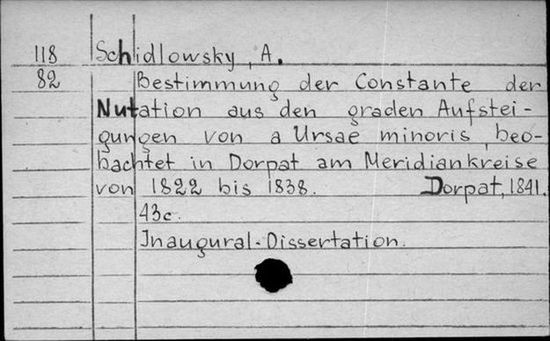 118 Schidlowsky, A.
82 Bestimmung der Constante der
Nutation aus den graden Aufstei-
gungen von a Ursae minoris, beo-
bachtet in Dorpat am Meridiankreise
von 1822 bis 1838. Dorpat, 1841.
43c.
Inaugural-Dissertation.